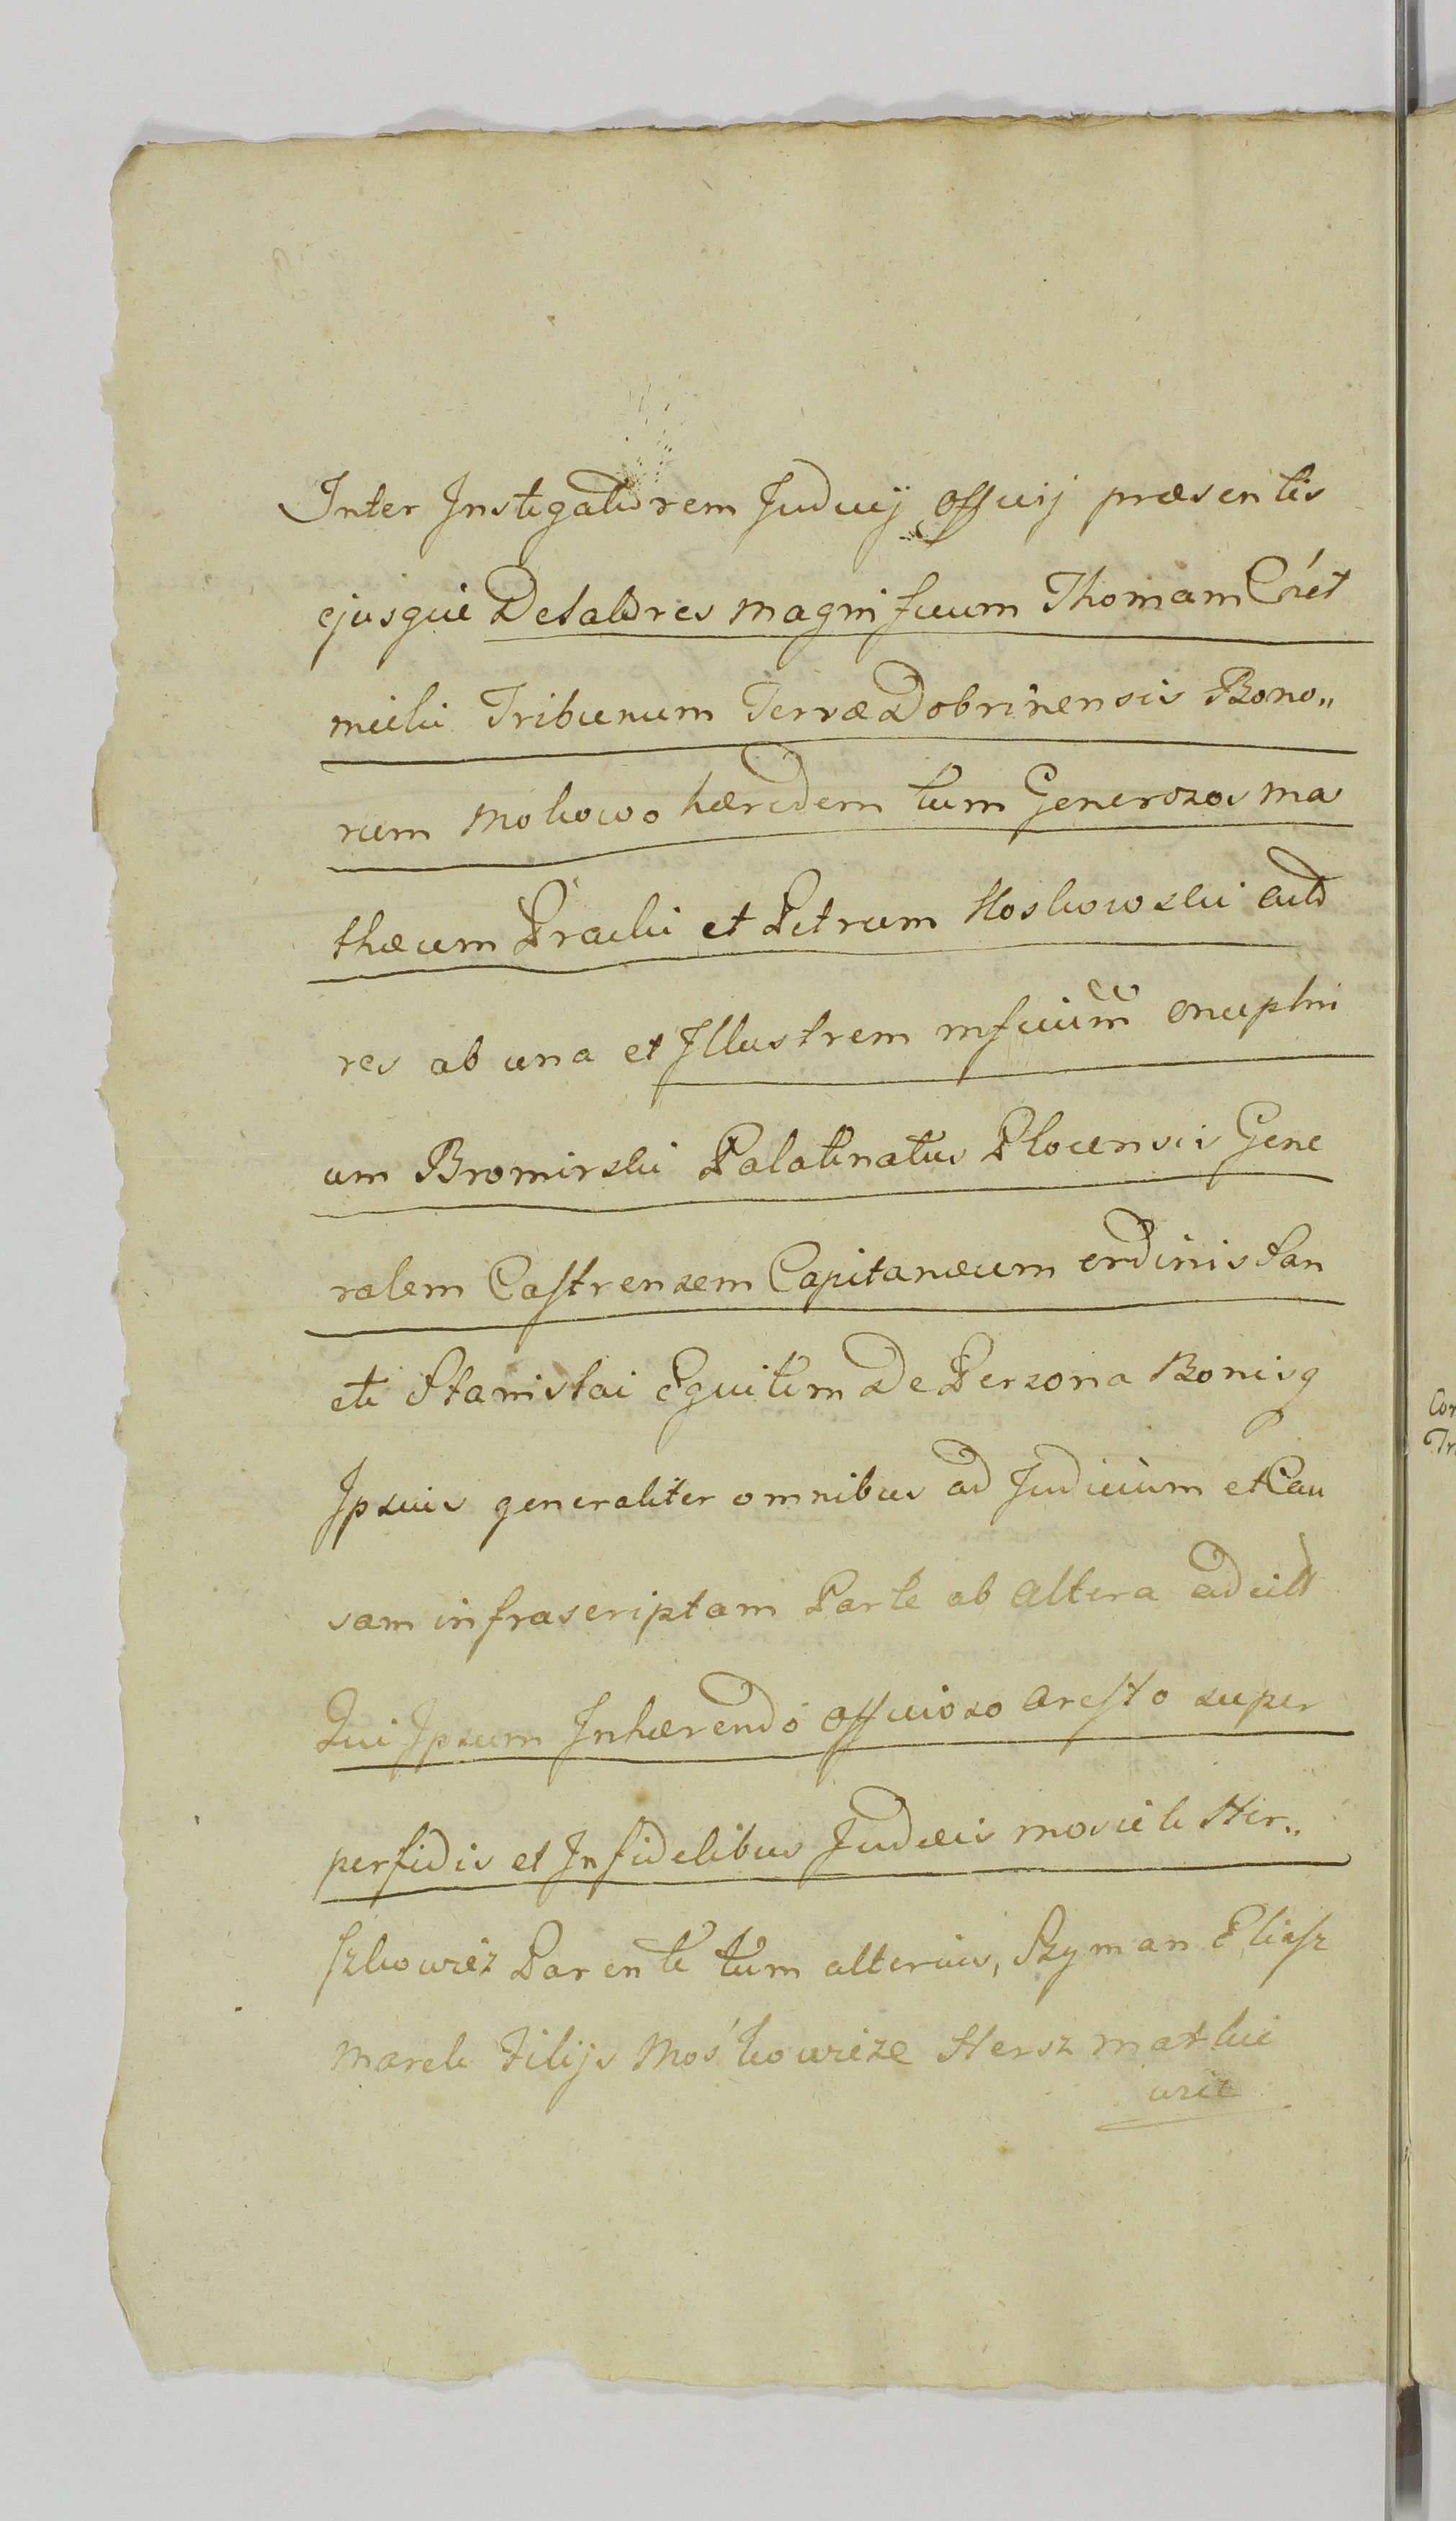 Inter Instigatorem Judicij Officij præsentis
ejusque Delatores Magnificum Thomam Ćiet
mieiki Tribunum Terræ Dobrinensis Bono„
rum Mokowo hæredem tum Generozos Ma
thæum Pracki et Petrum Koskowski acto
res ab una et Illustrem Mficum Onuphri
um Bromirski Palatinatus Plocensis Gene
ralem Castrensem Capitaneum Ordinis San
cti Stanislai Equitem De Persona Bonisq
Ipsius generaliter omnibus ad Judicium et Cau
sam infrascriptam Parte ab altera
Qui Ipsum Inhærendo Officioso Aresto super
perfidis et Infidelibus Judæis Mosiek Her„
szkowicz Parente tum alterius, Szyman Eliasz
Marek Filijs Mośkowicze Hersz Matkie
wicz
Con
Tr